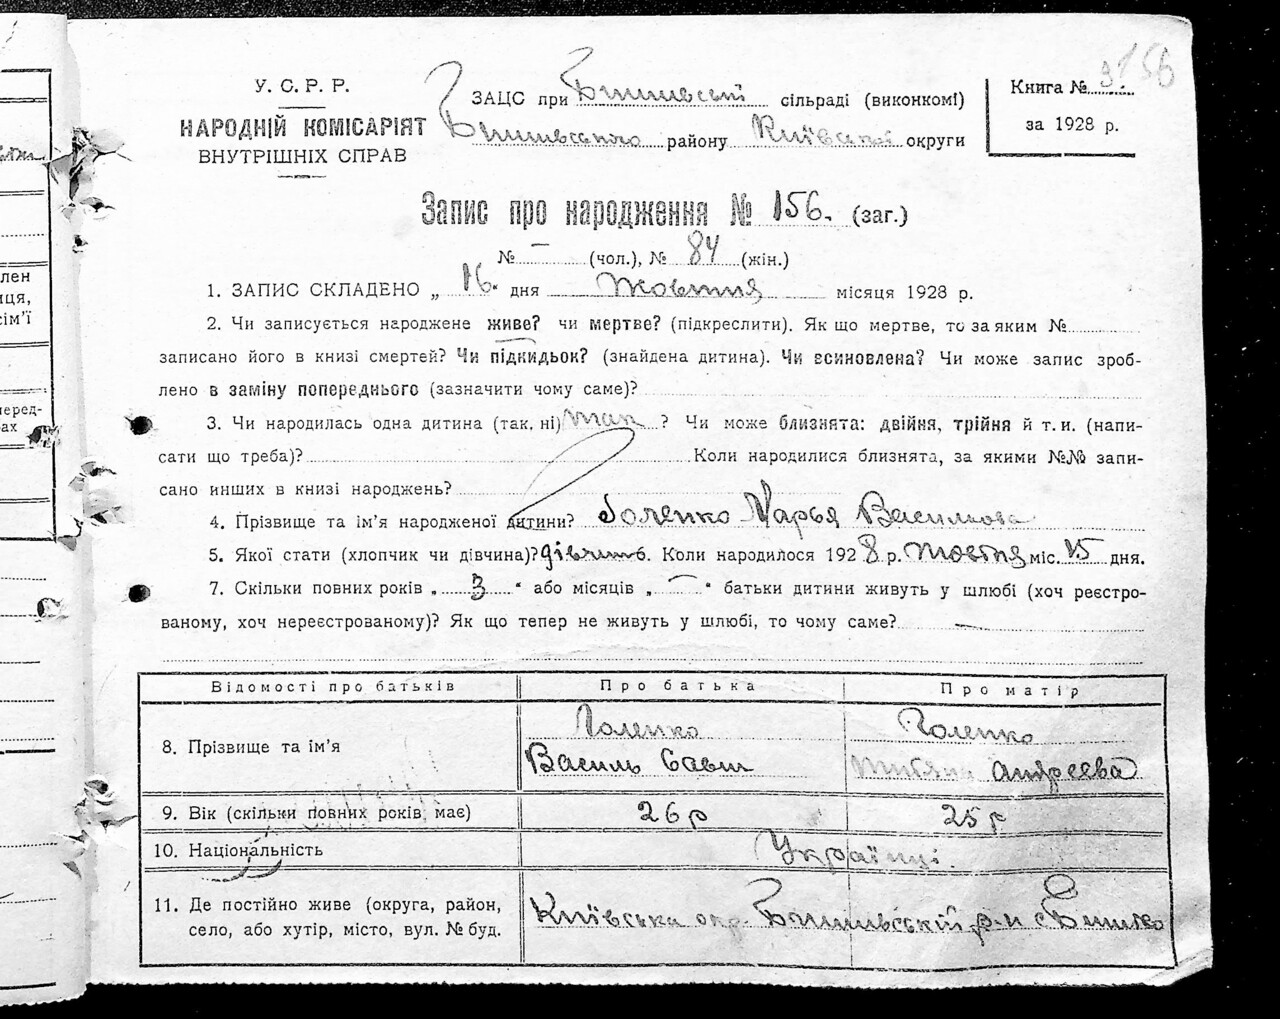 156
У. С. Р. Р.
НАРОДНІЙ КОМІСАРІЯТ
ВНУТРІШНІХ СПРАВ
ЗАЦС при Бишівській сільраді (виконкомі)
Бишівського району Київської округи
Книга №
за 1928 р.
Запис про народження № 156. (заг.)
№ — (чол.), № 84 (жін.)
1. ЗАПИС СКЛАДЕНО „ 16 “ дня Жовтня місяця 1928 р.
2. Чи записується народжене живе? чи мертве? (підкреслити). Як що мертве, то за яким №
записано його в книзі смертей? Чи підкидьок? (знайдена дитина). Чи всиновлена? Чи може запис зроб-
лено в заміну попереднього (зазначити чому саме)?
3. Чи народилась одна дитина (так, ні) так ? Чи може близнята: двійня, трійня й т. и. (напи-
сати що треба)? Коли народилися близнята, за якими №№ запи-
сано инших в книзі народжень?
4. Прізвище та ім’я народженої дитини? Голенко Марья Василиова
5. Якої стати (хлопчик чи дівчина)? дівчина. Коли народилося 1928 р. жовтня міс. 15 дня.
7. Скільки повних років „ 3 “ або місяців „ — “ батьки дитини живуть у шлюбі (хоч реєстро-
ваному, хоч нереєстрованому)? Як що тепер не живуть у шлюбі, то чому саме? —
Відомості про батьків Про батька Про матір
8. Прізвище та ім’я Голенко Василь Савш Голенко Андреєва
9. Вік (скільки повних років має) 26 р 25 р
10. Національність Українці.
11. Де постійно живе (округа, район, село, або хутір, місто, вул. № буд. Київська окр. Бишівський р-н с
лен
иця,
сім’ї
перед-
ах